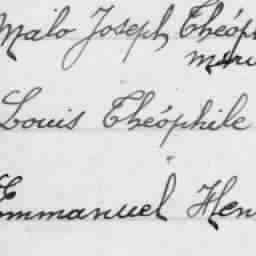 Malo Joseph Théop
mari
Louis Théophile
Emmanuel Hen